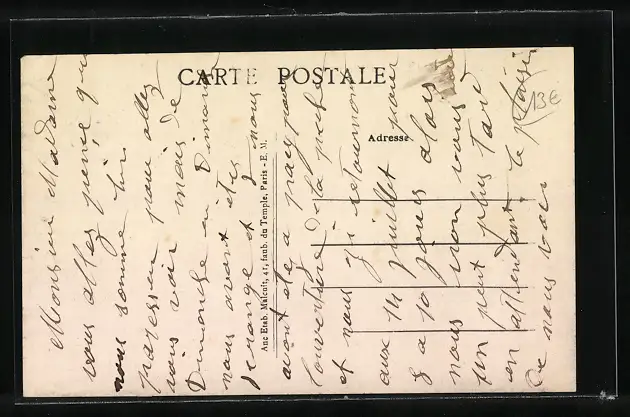 CARTE POSTALE
Adresse
Anc Etab. Malcuit, 41, faub. du Temple, Paris - E. M.
13€
Monsieur Madame
vous allez pensé que
nous somme bien
paresseu pour allez
vous voir mais de
Dimanche en Dimanche
nous avont étés
deranger et nous
avont été a pour
l'ouverture de la peche
et nous y retournon
aux 14 juillet pour
8 a 10 jours alors
nous iron vous
un peut plus tard
en attendant le plaisir
De vous voir